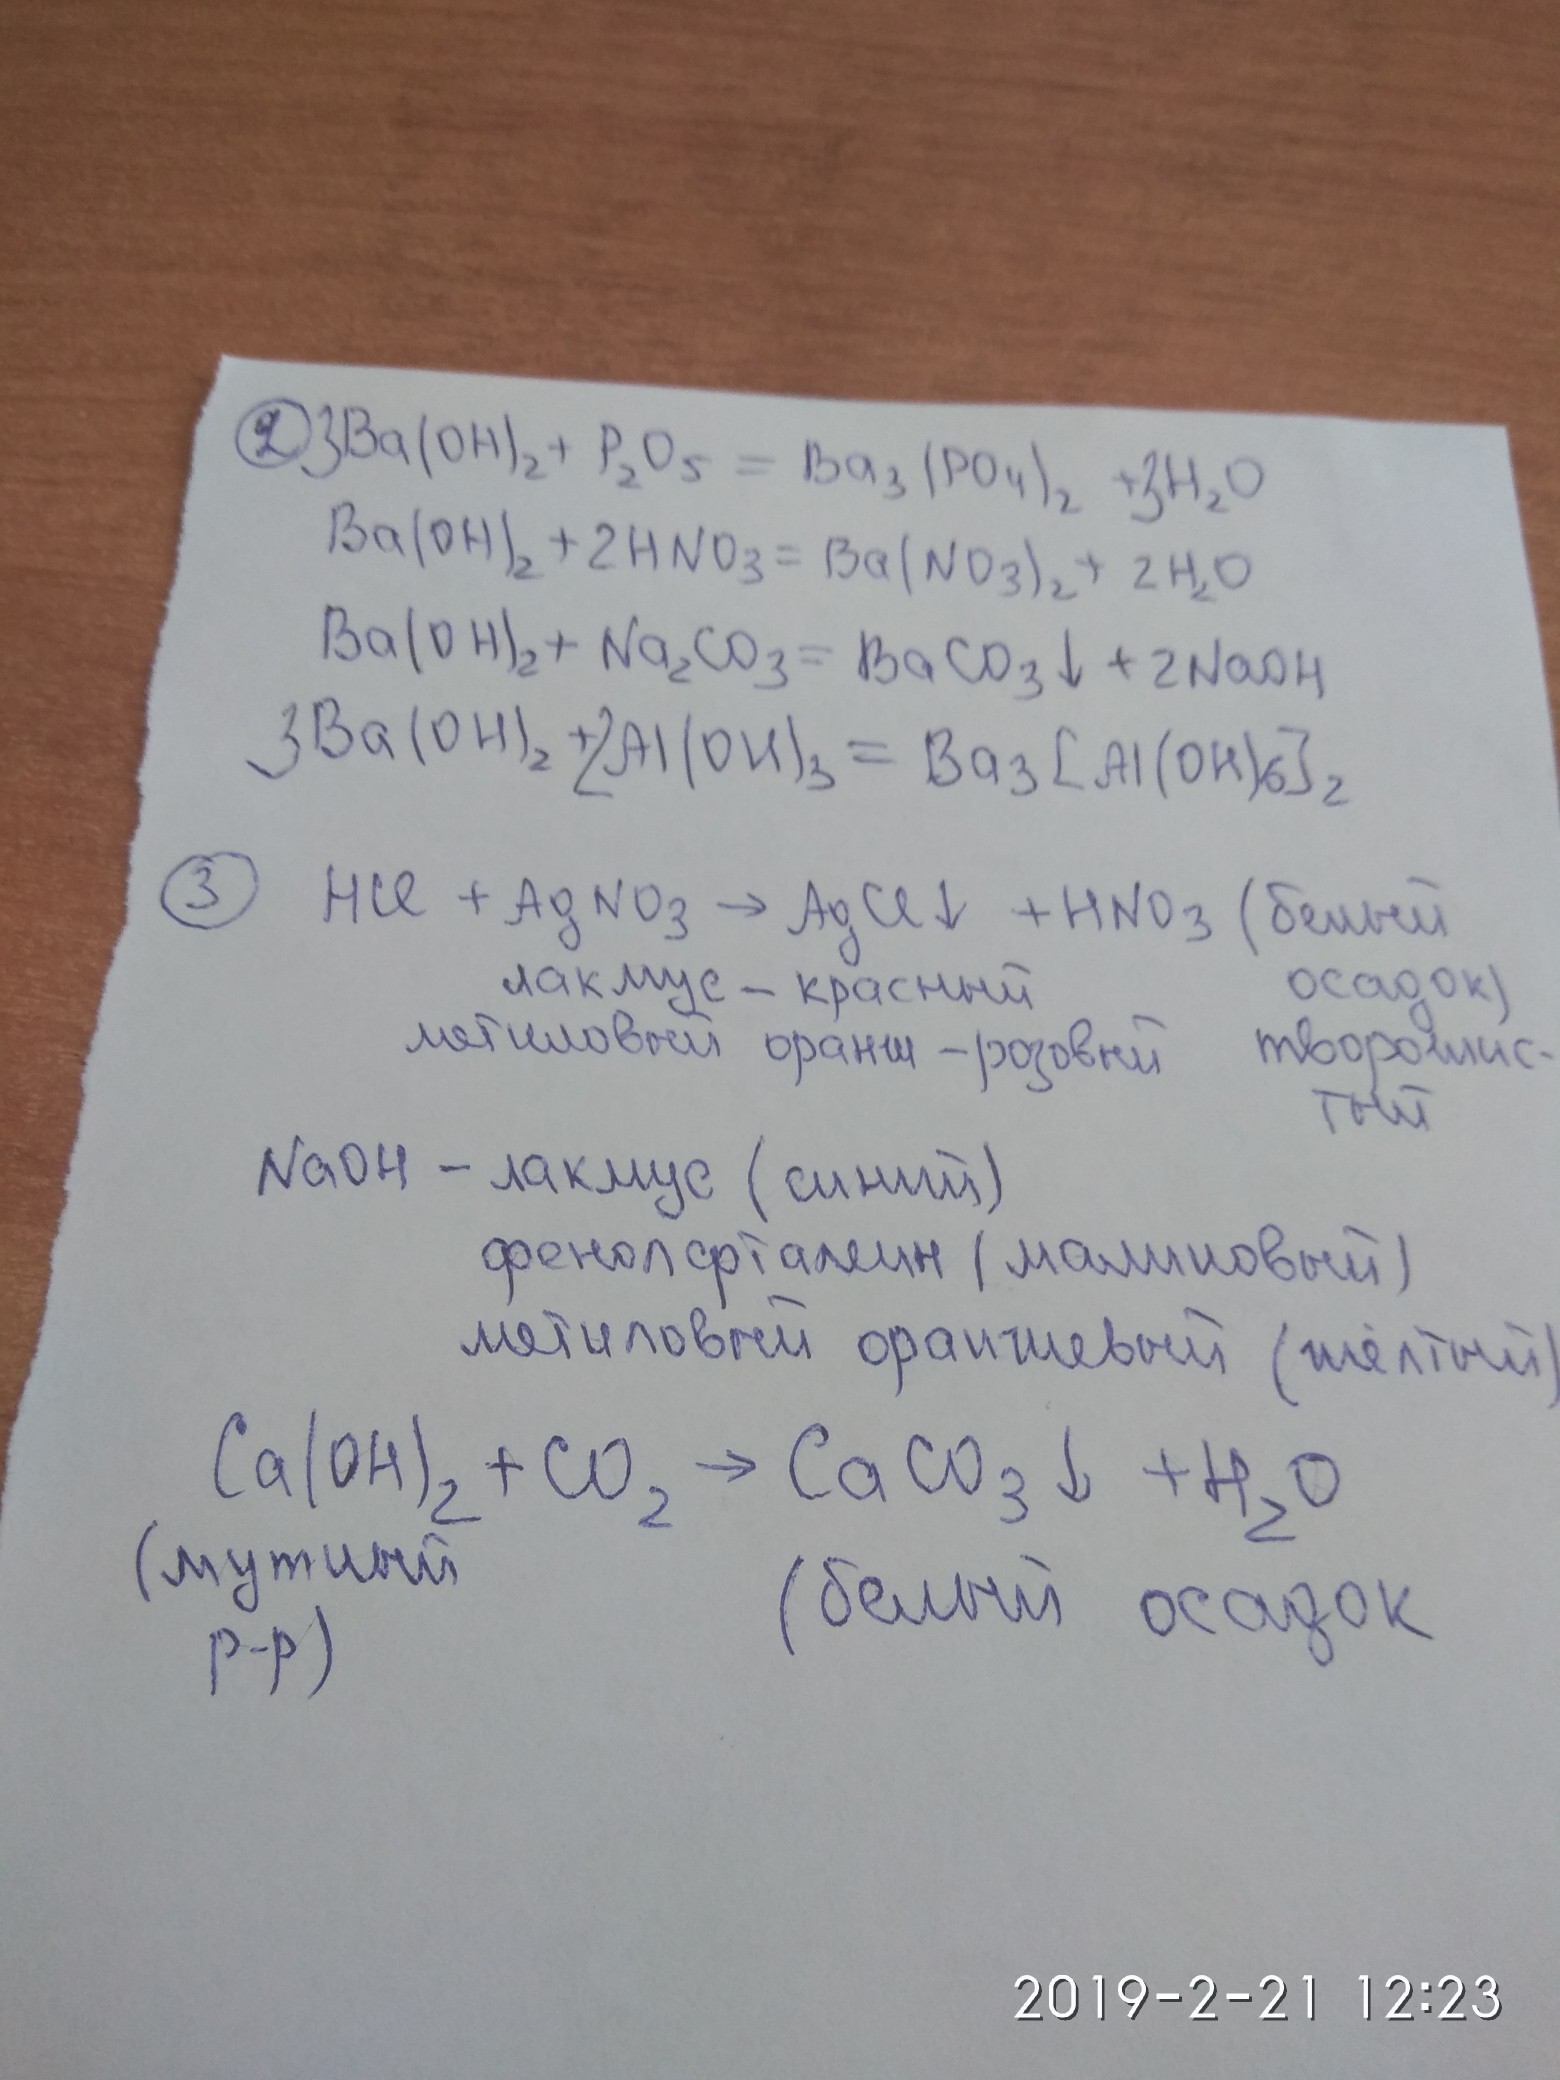 ② 3Ba(OH)₂ + P₂O₅ = Ba₃(PO₄)₂ + 3H₂O
Ba(OH)₂ + 2HNO₃ = Ba(NO₃)₂ + 2H₂O
Ba(OH)₂ + Na₂CO₃ = BaCO₃↓ + 2NaOH
3Ba(OH)₂ + 2Al(OH)₃ = Ba₃[Al(OH)₆]₂
③ HCl + AgNO₃ → AgCl↓ + HNO₃ (белый
лакмус – красный осадок)
метиловый оранж – розовый творожис-
тый
NaOH – лакмус (синий)
фенолфталеин (малиновый)
метиловый оранжевый (жёлтый)
Ca(OH)₂ + CO₂ → CaCO₃↓ + H₂O
(мутный (белый осадок
р-р)
2019-2-21 12:23